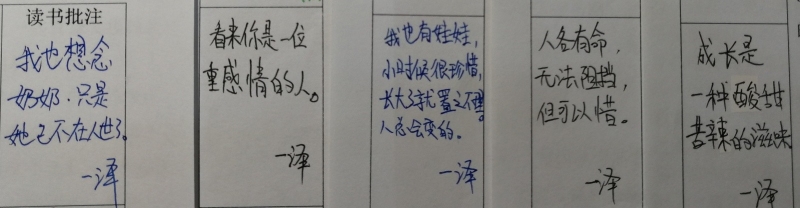 读书批注
我也想念
奶奶.只是
她已不在人世了。
一泽
看来你是一位
重感情的人。
一泽
我也有娃娃,
小时候很珍惜,
长大了就置之不理。
人总会变的。
一泽
人各有命,
无法阻挡,
但可以惜。
一泽
成长是
一种酸甜
苦辣的滋味
一泽